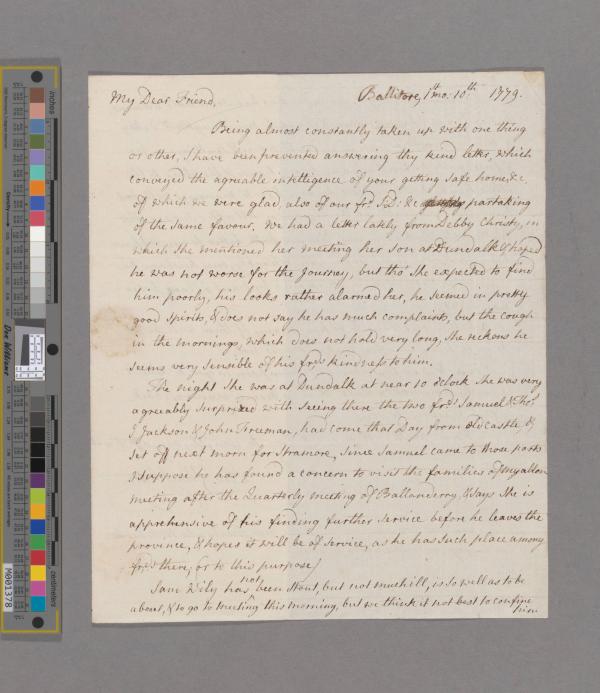 My Dear Friend,
Ballitore, 1st mo: 10th 1779.
Being almost constantly taken up with one thing
or other, I have been prevented answering thy kind letter, which
conveyed the agreable intelligence of your getting safe home, &c,
of which we were glad, also of our frd. Sd: &c partaking
of the same favour. We had a letter lately from Debby Christy, in
which She mentioned her meeting her son at Dundalk & hoped
he was not worse for the Journey, but tho' She expected to find
him poorly, his looks rather alarmed her, he seemed in pretty
good Spirits, & does not say he has much complaint, but the cough
in the mornings, which does not hold very long, She reckons he
seems very sensible of his frds. kindness to him.
The night She was at Dundalk at near 10 oClock She was very
agreeably Surprized with seeing there the two frds. Samuel & Thos.
J Jackson & John Freeman, had come that Day from oldcastle, &
set off next morn for Stramore, since Samuel came to those parts
I suppose he has found a concern to visit the families of Myallon
meeting after the Quarterly meeting of Ballanderry, & Says She is
apprehensive of his finding further Service before he leaves the
province, & hopes it will be of service, as he has such place among
frds. there, or to this purpose/
Sam Wily has not been Stout, but not much ill, is so well as to be
about, & to go to meeting this morning, but we think it not best to confine
him
inches
centimeters
Don Williams
M001378